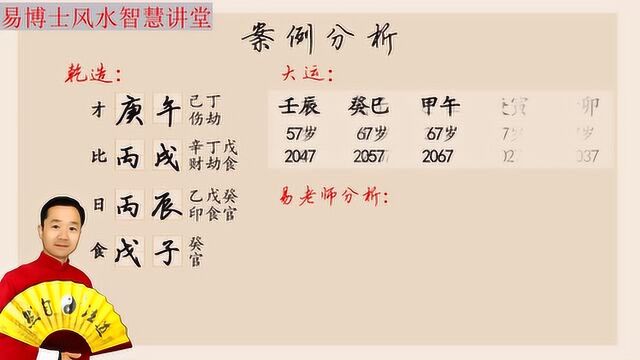 易博士风水智慧讲堂
案例分析
乾造：
才 庚 午 己丁
伤劫
比 丙 戌 辛丁戊
财劫食
日 丙 辰 乙戊癸
印食官
食 戊 子 癸
官
大运：
壬辰 癸巳 甲午 寅 卯
57岁 67岁 67岁 7岁
2047 2057 2067 027 037
易老师分析：